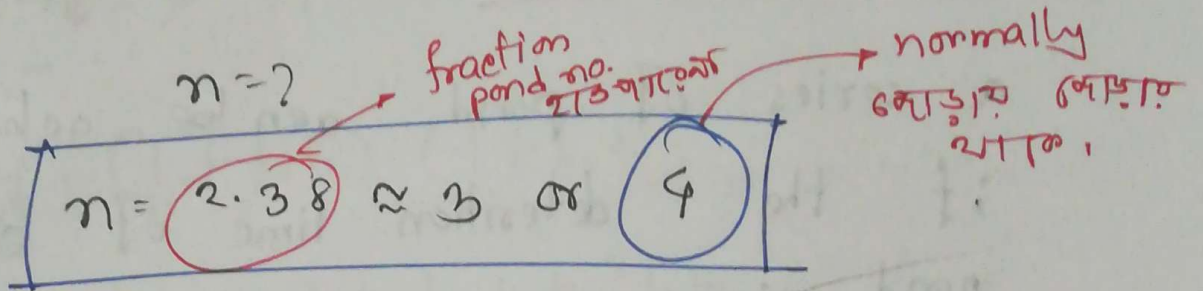 n = ?
fraction
pond no.
হতে পারেনা
normally
জোড়ায় জোড়ায়
থাকে।
n = 2.38 ≈ 3 or 4